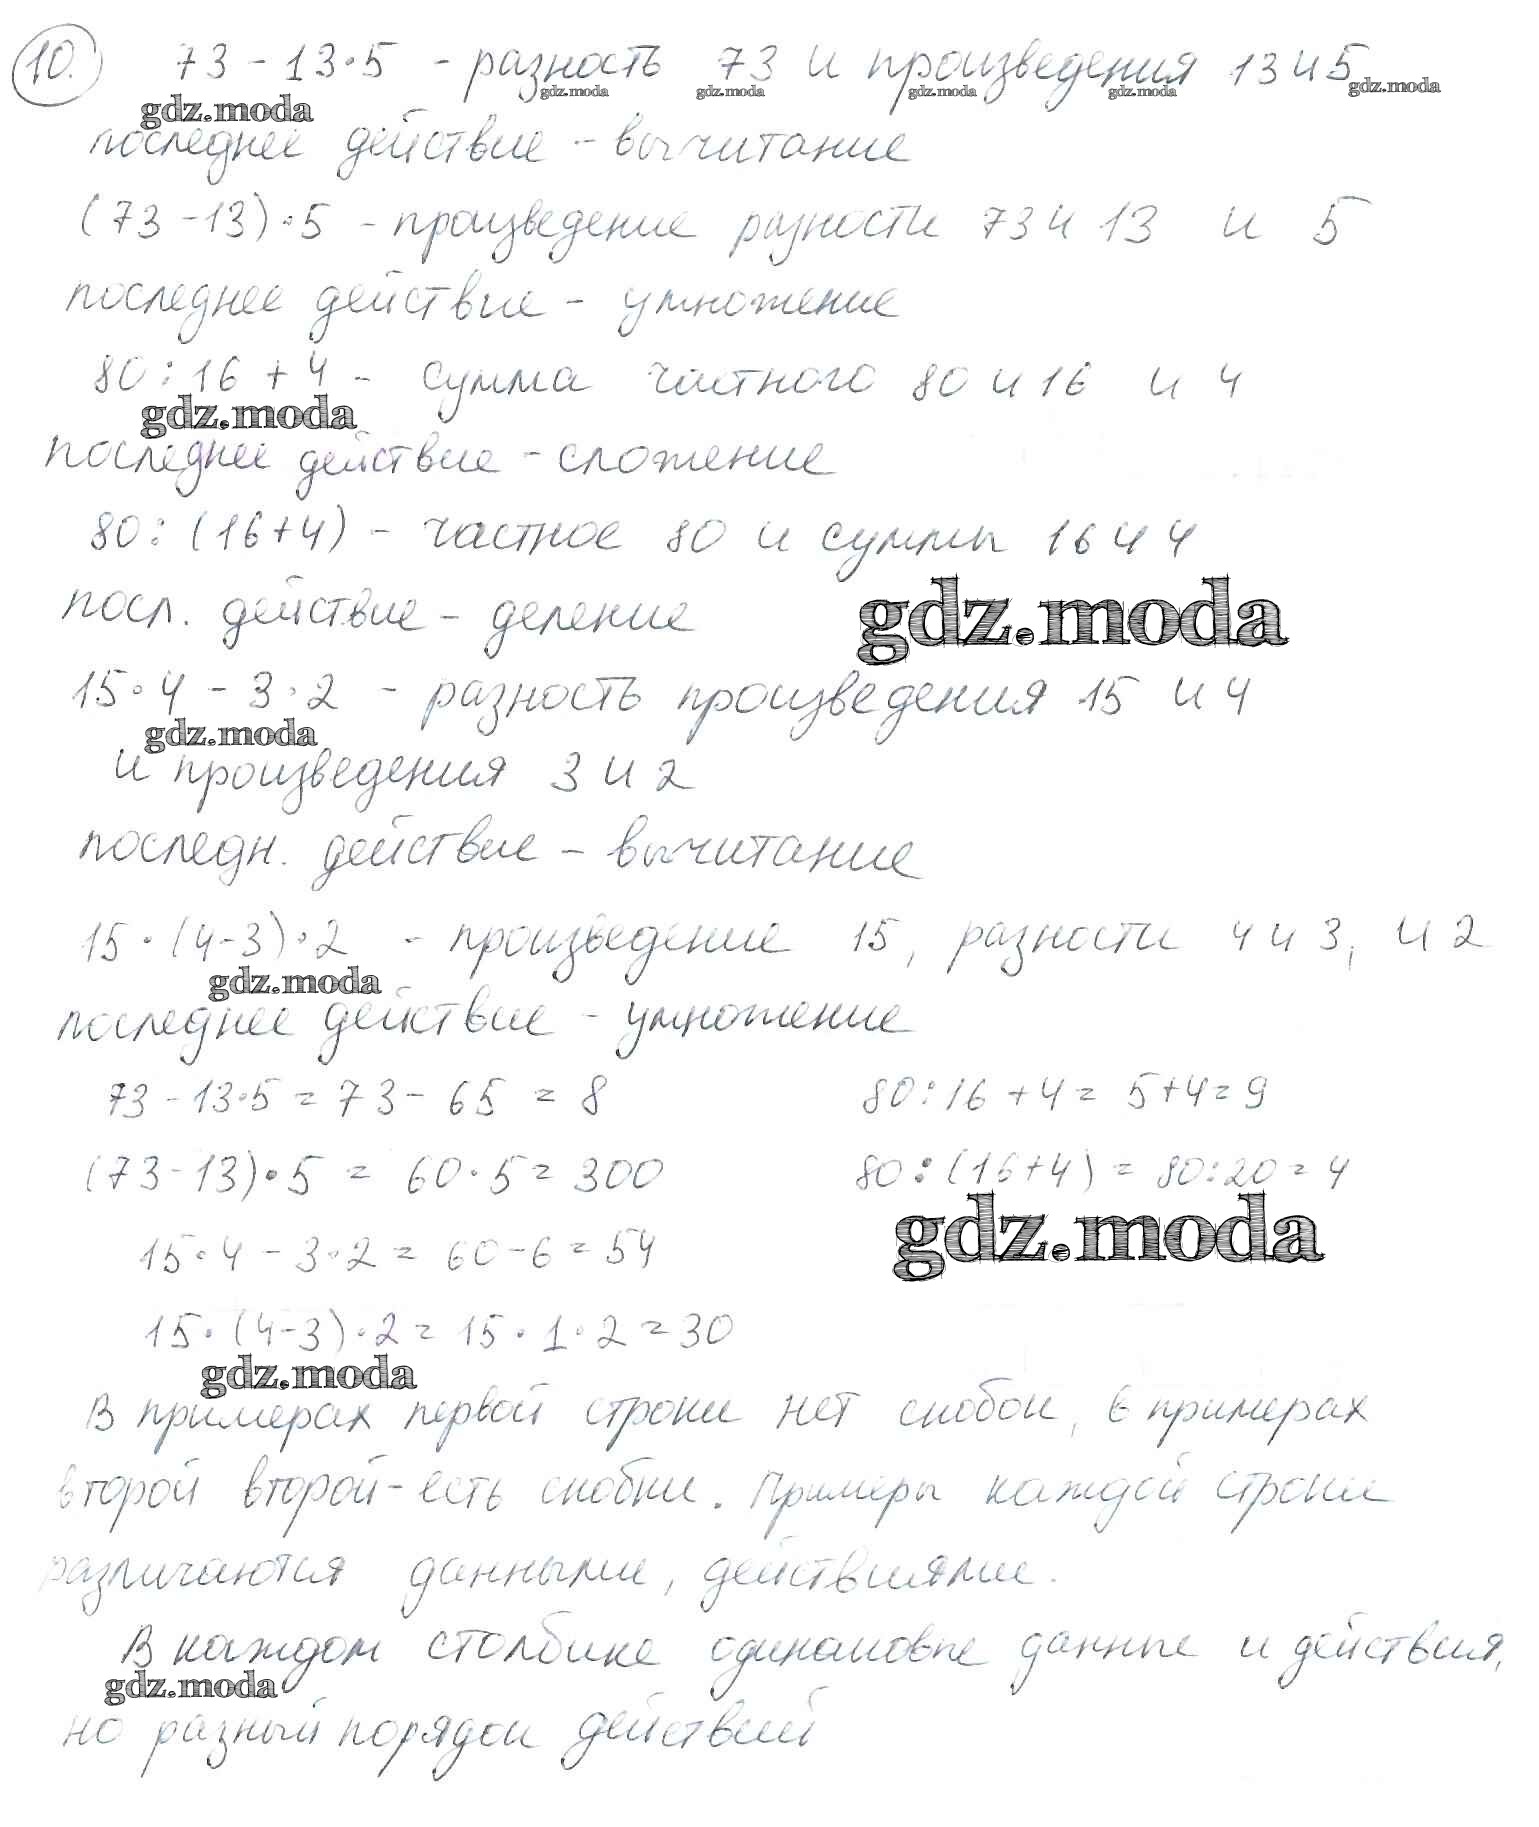 10. 73 - 13·5 - разность 73 и произведения 13 и 5
gdz.moda gdz.moda gdz.moda gdz.moda gdz.moda gdz.moda
последнее действие - вычитание
(73 - 13)·5 - произведение разности 73 и 13 и 5
последнее действие - умножение
80 : 16 + 4 - сумма частного 80 и 16 и 4
gdz.moda
последнее действие - сложение
80 : (16+4) - частное 80 и суммы 16 и 4
посл. действие - деление
gdz.moda
15·4 - 3·2 - разность произведения 15 и 4
gdz.moda
и произведения 3 и 2
последн. действие - вычитание
15·(4-3)·2 - произведение 15, разности 4 и 3, и 2
gdz.moda
последнее действие - умножение
73 - 13·5 = 73 - 65 = 8 80 : 16 + 4 = 5+4=9
(73 - 13)·5 = 60·5 = 300 80 : (16+4) = 80:20 = 4
gdz.moda
15·4 - 3·2 = 60 - 6 = 54
15·(4-3)·2 = 15·1·2 = 30
gdz.moda
В примерах первой строки нет скобок, в примерах
второй второй - есть скобки. Примеры каждой строки
различаются данными, действиями.
В каждом столбике одинаковые данные и действия,
gdz.moda
но разный порядок действий